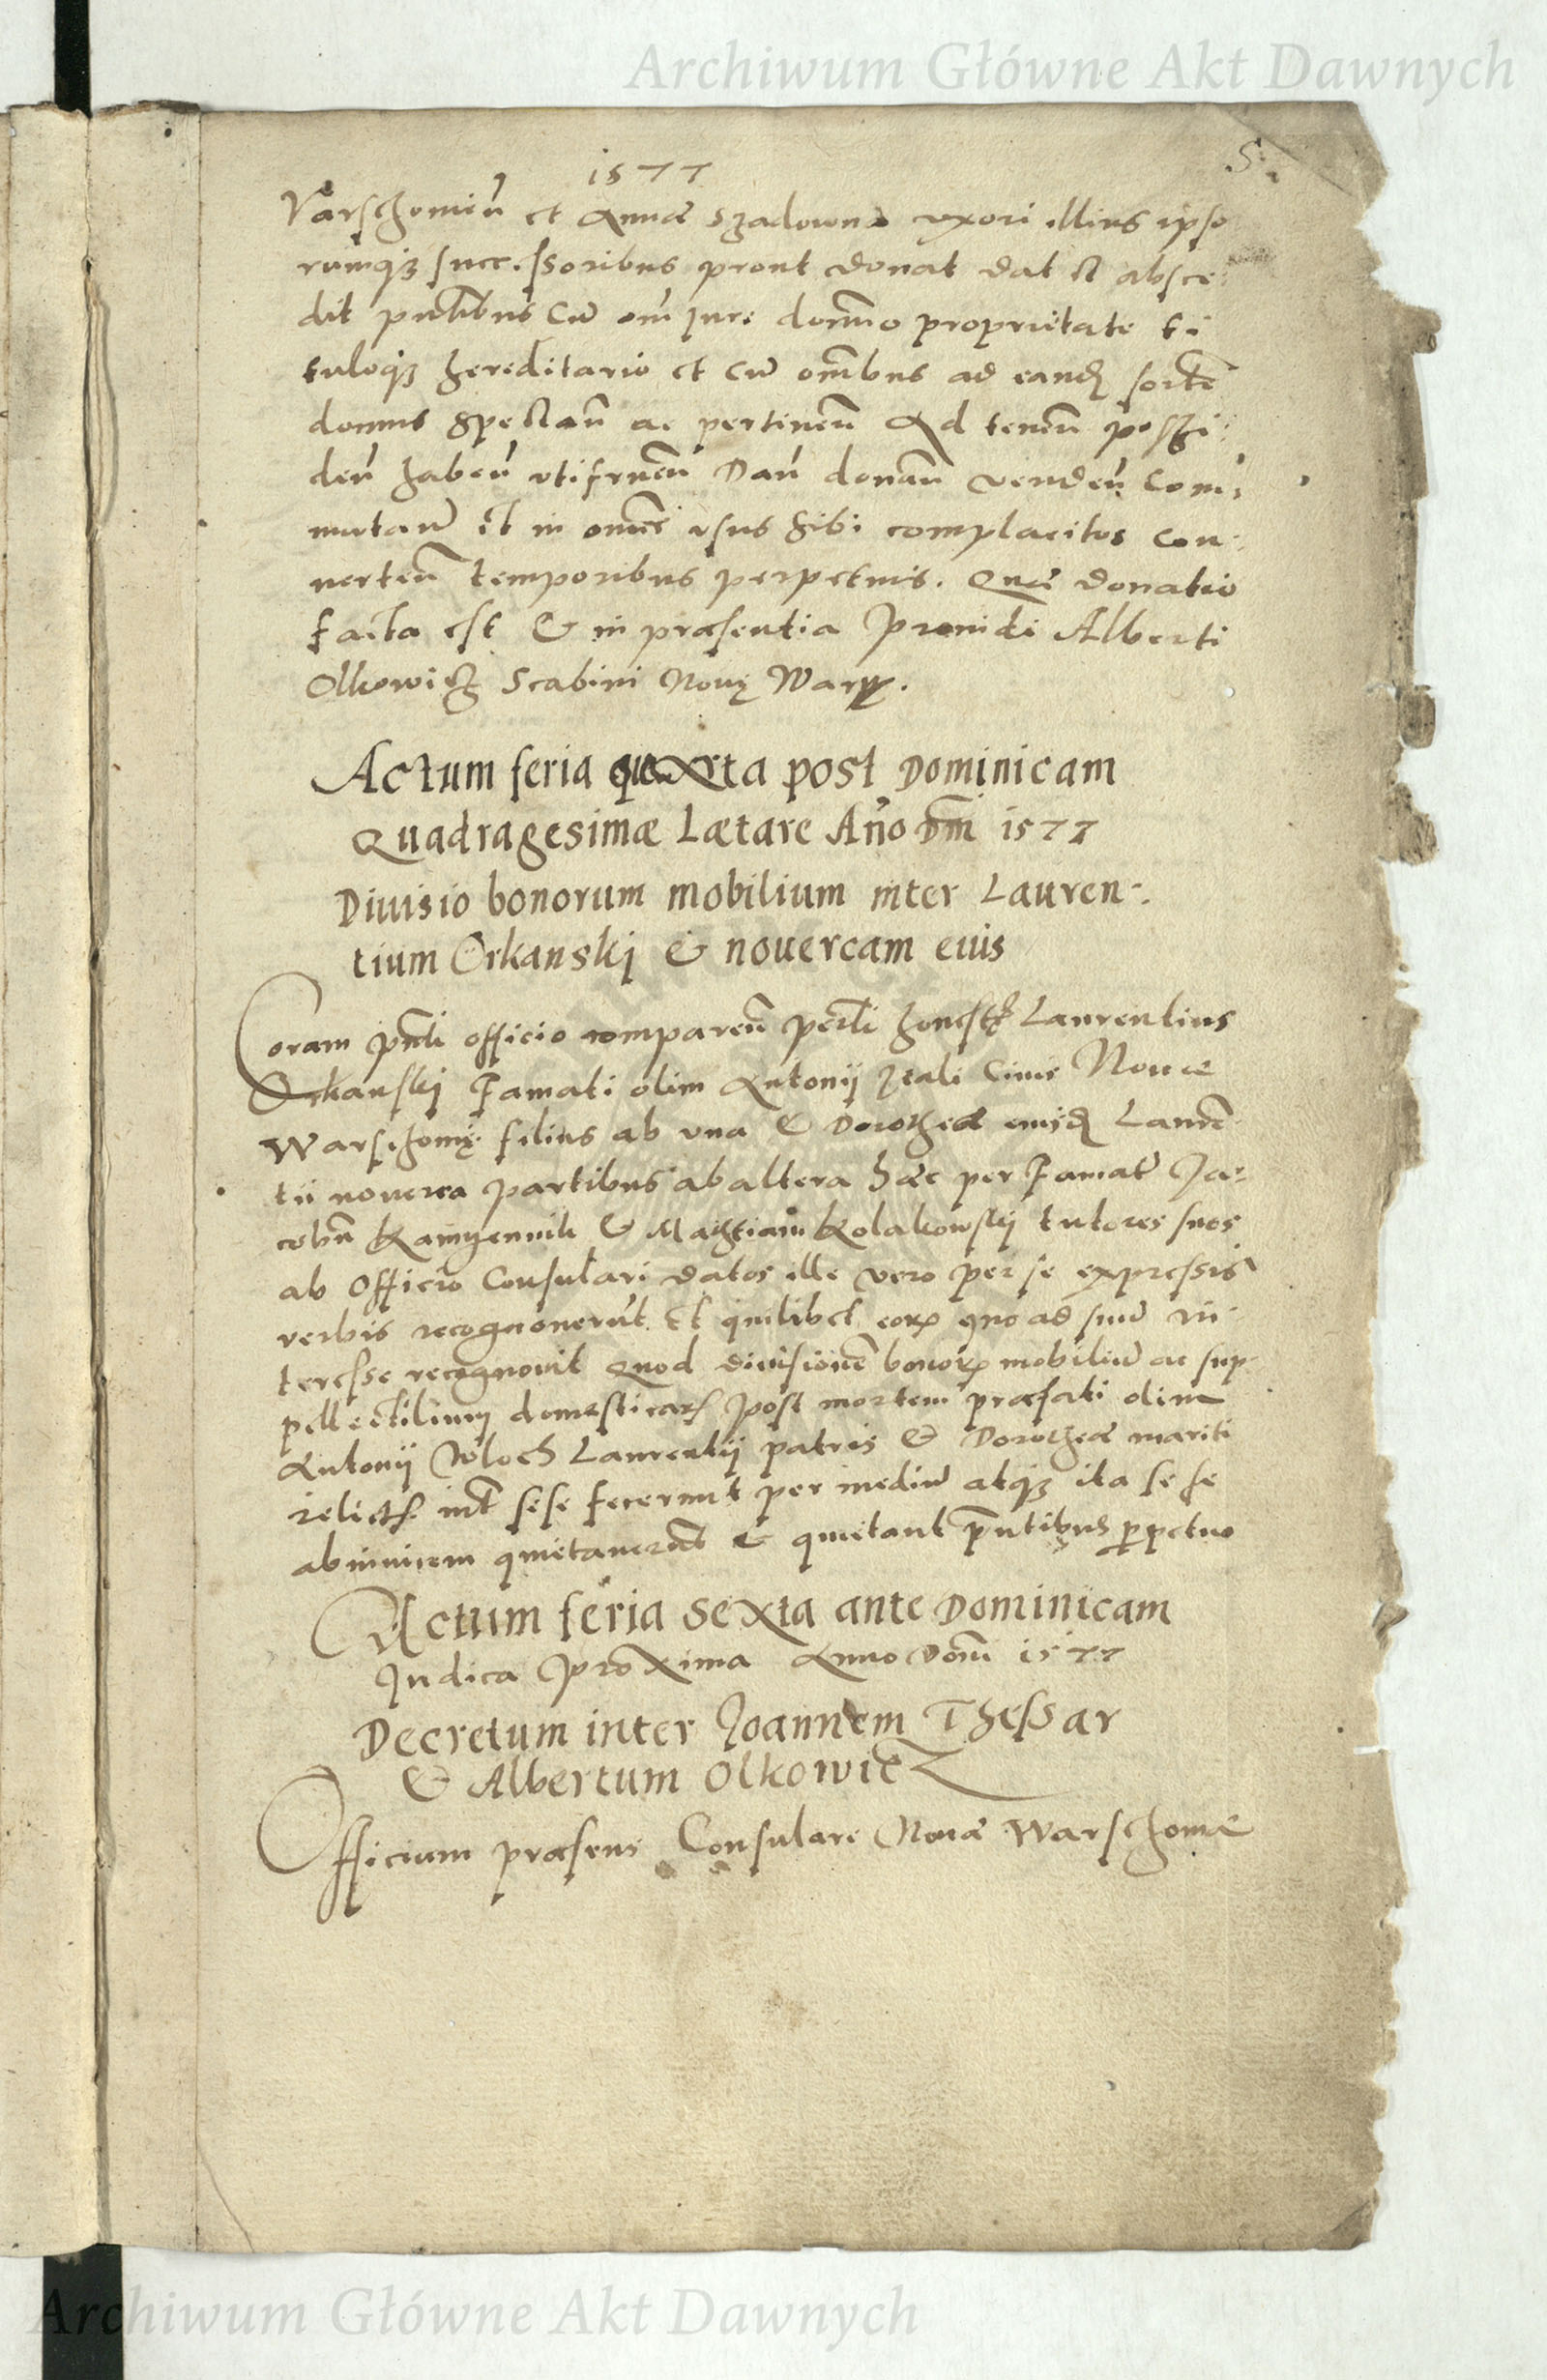 Archiwum Główne Akt Dawnych
1577
5.
Varschouień et Annæ Szadowna uxori illius ipso
rumqȝ successoribus prout donat dat et absce:
dit pntibus Cū om̄i Jure dom̄io proprietate ti
tuloqȝ hereditario et cū om̄ibus ad eandē sortē
domus spectań ac pertineń Ad teneń possi:
deń habeń utifrueń Dań donań vendeń com:
mutań Et in om̄es usus sibi complacitos con:
uerteń temporibus perpetuis. Quæ donatio
facta est & in præsentia Prouidi Alberti
Olkowicz Scabini Nouę War.
Actum feria quarta post Dominicam
Quadragesimæ Lætare Año Dm̄ 1577
Diuisio bonorum mobilium inter Lauren:
tium Orkanskj & nouercam eius
Coram pn̄ti officio compareń per̄lr honestꝰ Laurentius
Orkanskj Famati olim Antonij Itali Ciuis Nouæ
Warschouię filius ab una & Dorothea eiusdē Lauren
tii nouerca partibus ab altera hæc per Famatū Ja:
cobū Kamyennik & Martianū Kolakowskj tutores suos
ab Officio Consulari datos ille vero per se expressis
verbis recognouerūt Et quilibet eorꝝ quo ad suū in:
teresse recognouit Quod diuisionē bonorꝝ mobiliū ac sup:
pellectilium domesticarꝝ post mortem præfati olim
Antonij Wloch Laurentij patris & Dorotheæ mariti
relictarꝝ int̄ sese fecerunt per mediū atqȝ ita se se
abinuicem quietauerūt & quietant pn̄tibus ꝑpetuo
Actum feria sexta ante Dominicam
Judica Proxima Anno Dom̄ 1577
Decretum inter Joannem Thessar
& Albertum Olkowicz
Officium præsens Consulare Nouæ Warschouiæ
Archiwum Główne Akt Dawnych